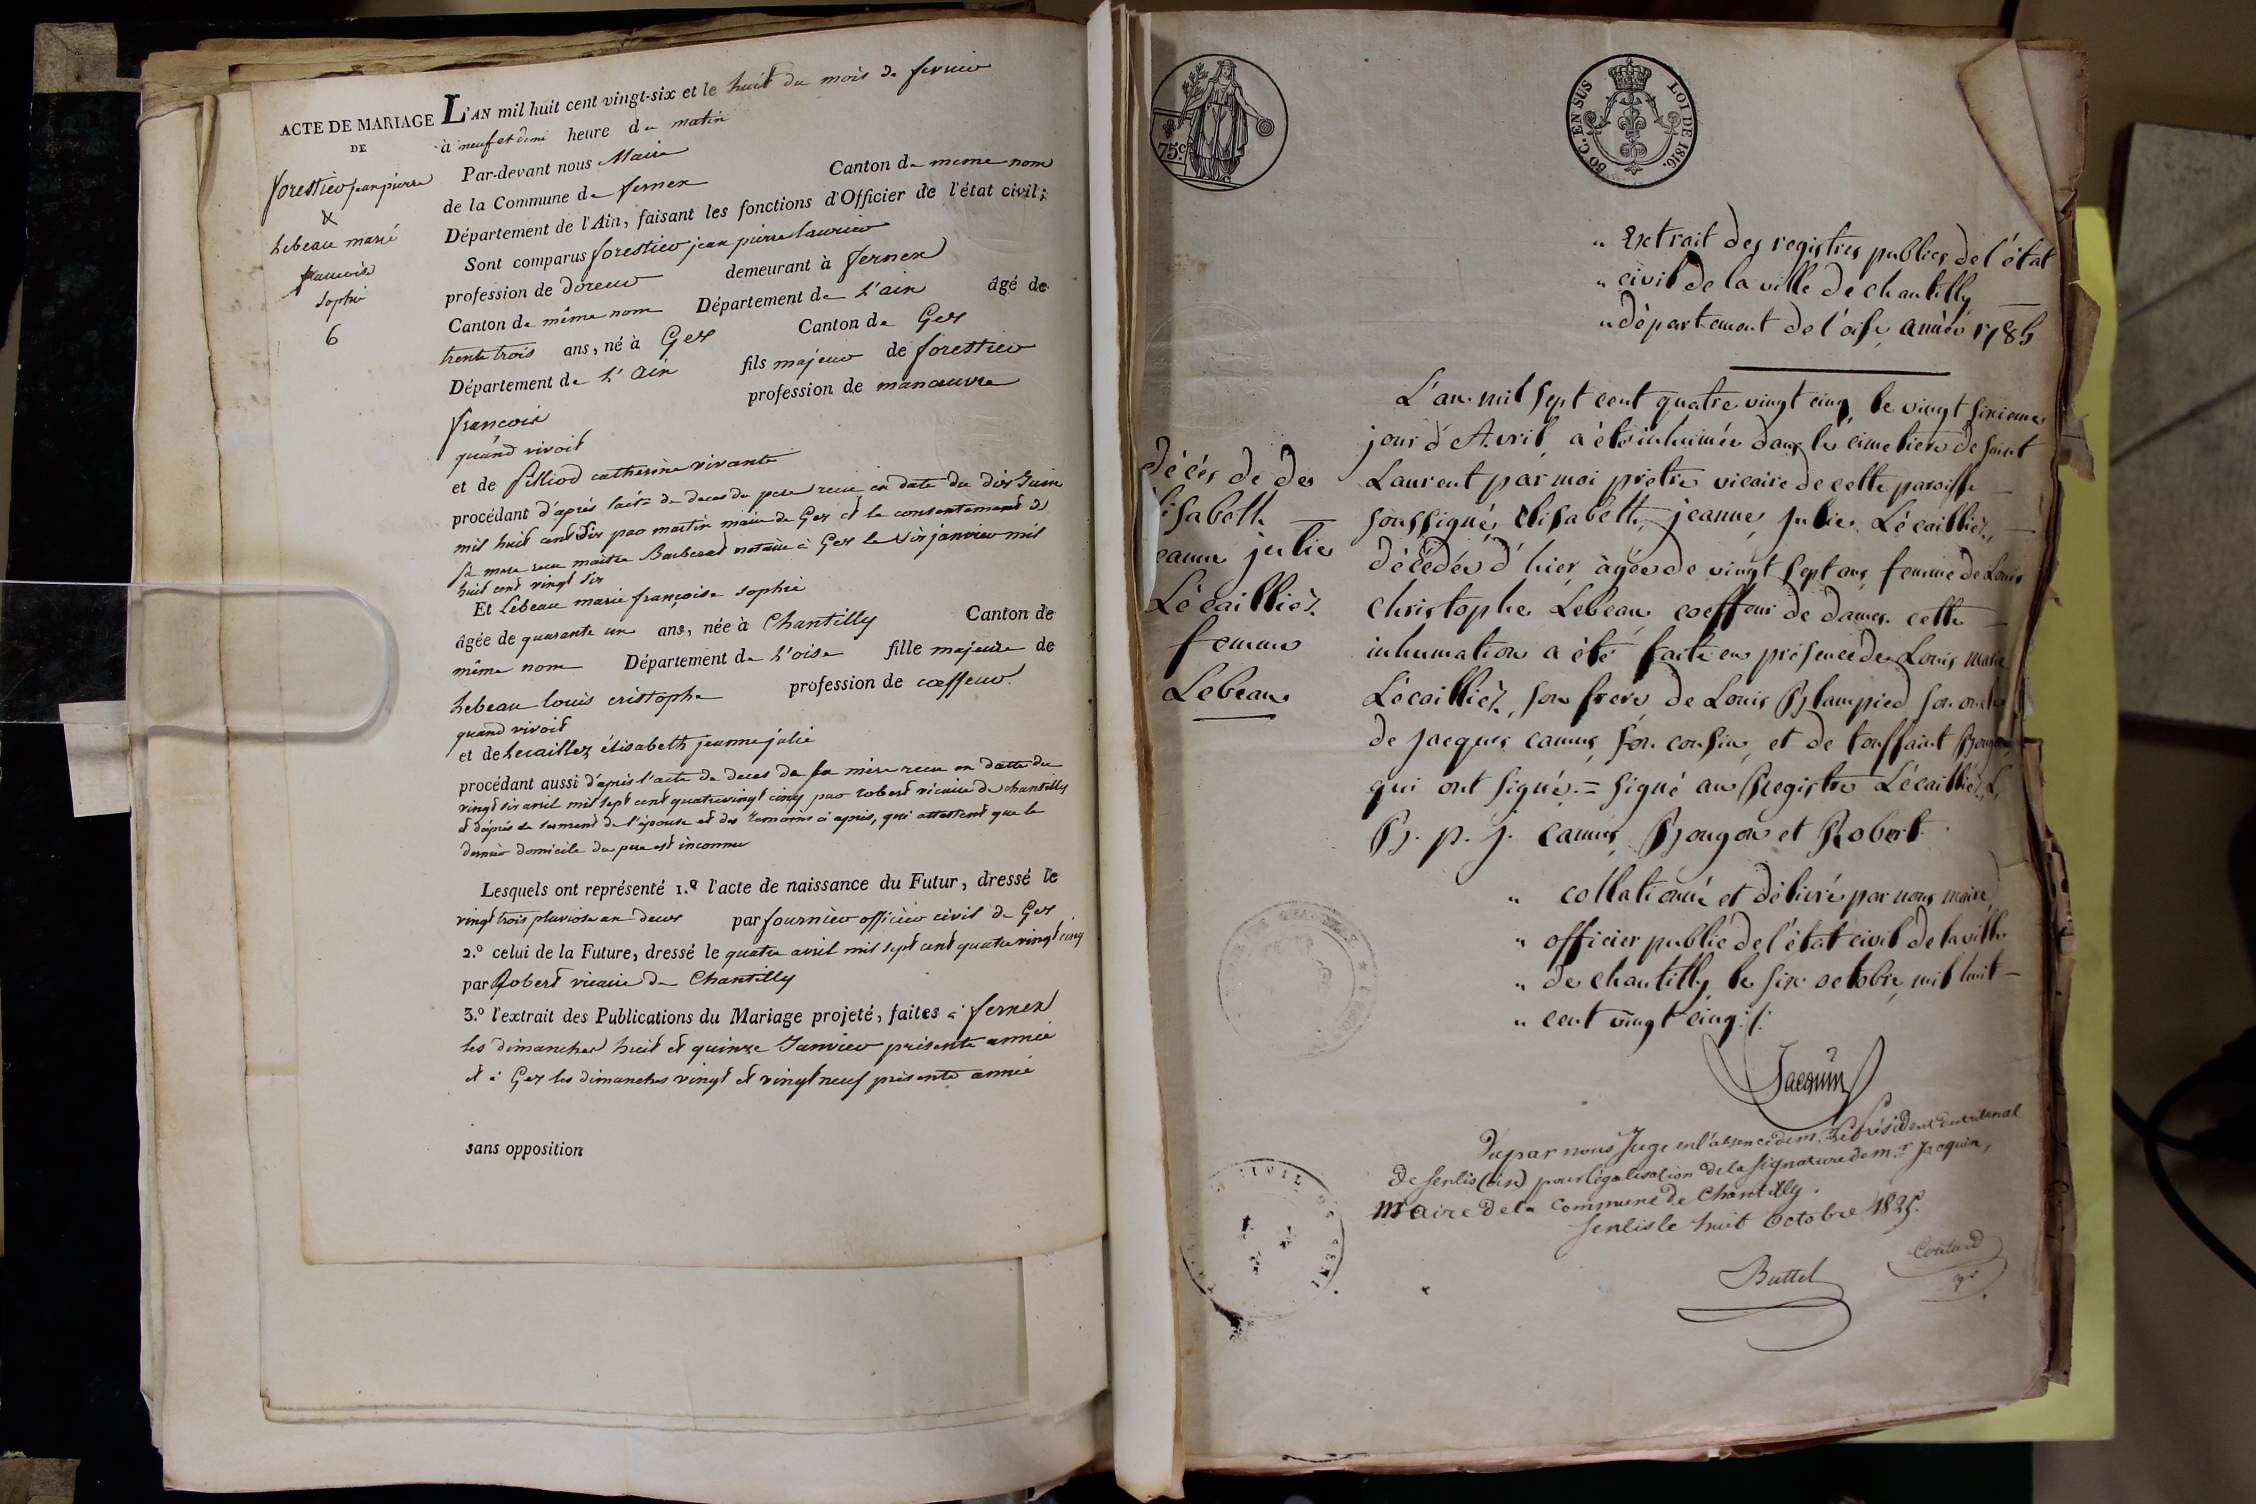 ACTE DE MARIAGE
DE
forestier jean pierre
&
Lebeau marie
françoise
sophie
6
L'AN mil huit cent vingt-six et le huit du mois de fevrier
à neuf et demi heure du matin
Par-devant nous Maire
de la Commune de fernex Canton de meme nom
Département de l'Ain, faisant les fonctions d'Officier de l'état civil;
Sont comparus forestier jean pierre laurier
profession de doreur demeurant à fernex
Canton de même nom Département de L'ain âgé de
trente trois ans, né à Gex Canton de Gex
Département de L'Ain fils majeur de forestier
françois profession de manœuvre
quand vivoit
et de filliod catherine vivante
procédant d'après l'acte de deces du pere reçu en date du dix Juin
mil huit cent dix par martin maire de Gex et le consentement de
sa mere reçu maitre Barberat notaire à Gex le dix janvier mil
huit cent vingt six
Et Lebeau marie françoise sophie
âgée de quarante un ans, née à Chantilly Canton de
même nom Département de L'oise fille majeure de
Lebeau louis cristophe profession de coeffeur
quand vivoit
et de Lecaillez élisabeth jeanne julie
procédant aussi d'après l'acte de deces de sa mère reçu en datte du
vingt six avril mil sept cent quatrevingt cinq par robert vicaire de chantilly
et d'après le serment de l'épouse et des temoins ci après, qui attestent que le
dernier domicile du pere est inconnu
Lesquels ont représenté 1.º l'acte de naissance du Futur, dressé le
vingt trois pluviose an deux par fournier officier civil de Gex
2.º celui de la Future, dressé le quatre avril mil sept cent quatrevingt cinq
par Robert vicaire de Chantilly
3.º l'extrait des Publications du Mariage projeté, faites à fernex
les dimanches huit et quinze Janvier présente année
et à Gex les dimanches vingt et vingt neuf présente année
sans opposition
75.c
50 C. EN SUS
LOI DE 1816.
" Extrait des registres publics de l'état
" civil de la ville de chantilly
" département de l'oise, année 1785
décès de de
lisabeth
eanne julie
Lécailliez
femme
Lebeau
L'an mil sept cent quatre vingt cinq, le vingt sixieme
jour d'Avril, a été inhumée dans le cimetiere de saint
Laurent par moi prêtre vicaire de cette paroisse
soussigné, Elisabeth, jeanne, julie Lécailliez,
décédée d'hier, âgée de vingt sept ans, femme de Louis
christophe Lebeau, coeffeur de dames. cette
inhumation a été faite en présence de Louis marie
Lécailliez, son frere de Louis Blampied son oncle
de jacques camus, son cousin, et de toussaint Bougon
qui ont signé. = signé au Registre Lécailliez, L.
B. p. j. camus, Bougon et Robert.
" collationné et délivré par nous maire,
" officier public de l'état civil de la ville
" de chantilly le six octobre, mil huit
" cent vingt cinq ./.
Jacquin
Vu par nous Juge en l'absence de m. Le Président du tribunal
de senlis (oise) pour légalisation de la signature de m.r Jacquin,
Maire de la Commune de Chantilly.
senlis le huit octobre 1825.
Buttel
Coutard